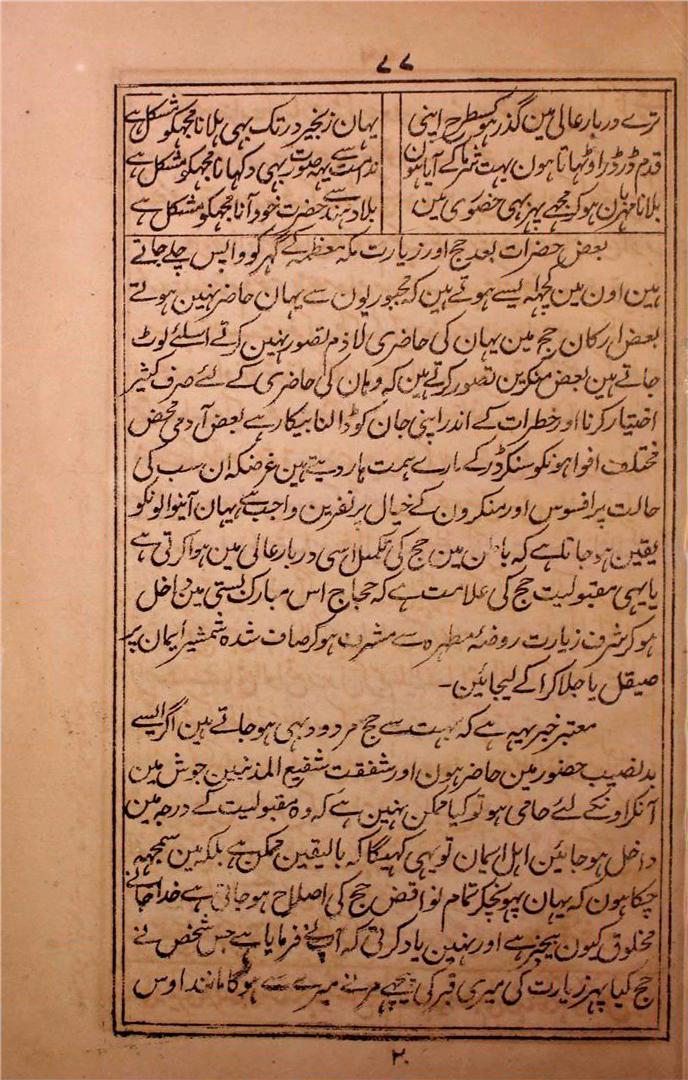 ۷۷
ترے دربار عالی مین گذر ہو کسطرح اپنی یہان زنجیر در تک بہی ہلانا مجھکو مشکل ہے
قدم ڈر ڈر اوٹہاتا ہون بہت شرما کے آیا ہون ندامت سے یہہ صورت بہی دکھانا مجھکو مشکل ہے
بلانا مہربان ہو کر مجھے پہر بہی حضوری مین بلاد ہند سے حضرت خود آنا مجھکو مشکل ہے
بعض حضرات بعد حج اور زیارت مکہ معظمہ کے گہر کو واپس چلے جاتے
ہین اون مین کچہہ ایسے ہوتے ہین کہ مجبوریون سے یہان حاضر نہین ہوتے
بعض ارکان حج مین یہان کی حاضری لازم تصور نہین کرتے اسلئے لوٹ
جاتے ہین بعض منکرین تصور کرتے ہین کہ وہان کی حاضری کے لئے صرف کثیر
اختیار کرنا اور خطرات کے اندر اپنی جان کو ڈالنا بیکار ہے بعض آدمی محض
مختلف افواہونکو سنکر ڈر کے مارے ہمت ہار دیتے ہین غرضکہ ان سب کی
حالت پر افسوس اور منکرون کے خیال پر نفرین واجب ہے یہان آنیوالونکو
یقین ہو جاتا ہے کہ باطن مین حج کی تکمیل اسی دربار عالی مین ہوا کرتی ہے
یا یہی مقبولیت حج کی علامت ہے کہ حجاج اس مبارک بستی مین داخل
ہو کر شرف زیارت روضۂ مطہرہ سے مشرف ہو کر صاف شدہ شمشیر ایمان پر
صیقل یا جلا کرا کے لیجائین۔
معتبر خبر یہہ ہے کہ بہت سے حج مردود بہی ہو جاتے ہین اگر ایسے
بدنصیب حضور مین حاضر ہون اور شفقت شفیع المذنبین جوش مین
آنکر اونکے لئے حامی ہو تو کیا ممکن نہین ہے کہ وہ مقبولیت کے درجہ مین
داخل ہو جائین اہل ایمان تو یہی کہینگا کہ بالیقین ممکن ہے بلکہ مین سمجہہ
چکا ہون کہ یہان پہونچکر تمام نواقض حج کی اصلاح ہو جاتی ہے خدا جانے
مخلوق کیون بیخبر ہے اور نہین یاد کرتی کہ آپنے فرمایا ہے جس شخص نے
حج کیا پہر زیارت کی میری قبر کی پیچھے مرنے میرے سے ہو گا مانند اوس
۲۰